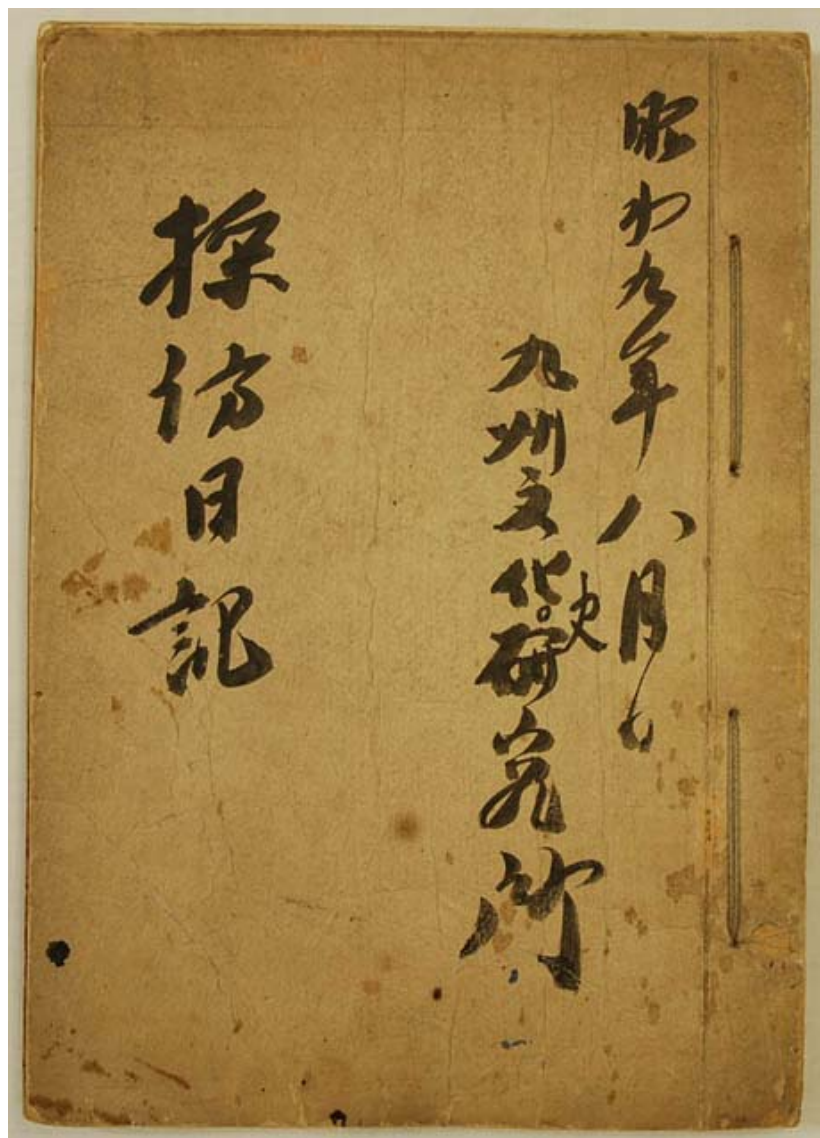 昭和九年八月日
九州文化史研究所
採訪日記